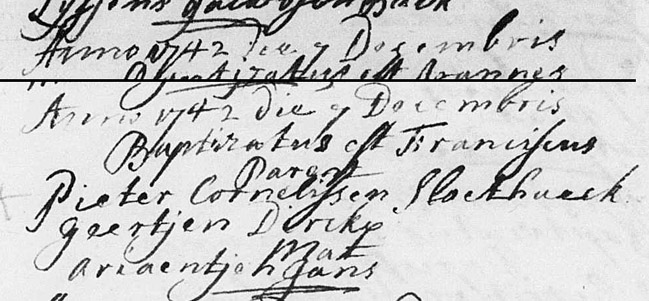 Anno 1742 die 7 Decembris
Baptizatus est Joannes
Anno 1742 die 7 Decembris
Baptizatus est Franciscus
Parent
Pieter Cornelissen Slockhaeck
Geertjen Dircks
Mat
Ariaentjen Jans